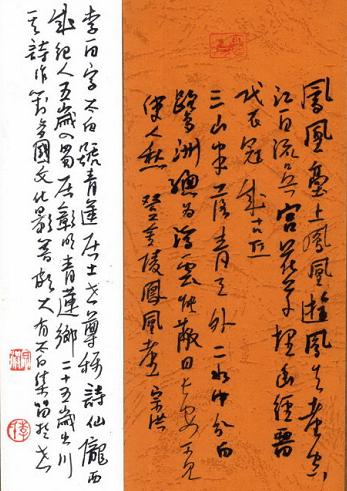 鳳凰臺上鳳凰遊鳳去臺空
江自流吳宮花草埋幽徑晉
代衣冠成古丘
三山半落青天外二水中分白
鷺洲總為浮雲能蔽日長安不見
使人愁 登金陵鳳凰臺 宗洪
李白字太白號青蓮居士世尊稱詩仙隴西
成紀人五歲入蜀居彰明青蓮鄉二十五歲出川
其詩作對國文化影響頗大有太白集留於世